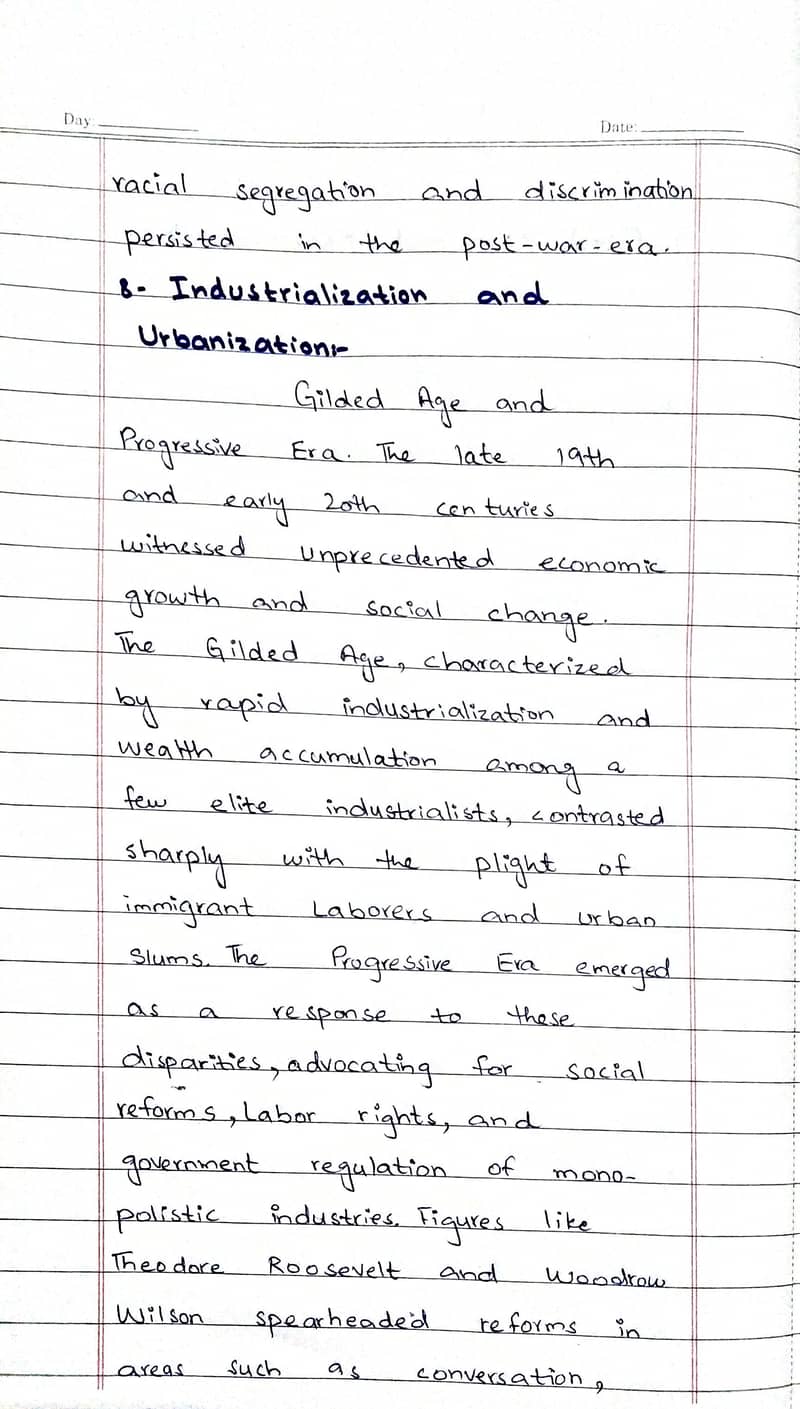 Day: Date:
racial segregation and discrimination
persisted in the post-war-era.
8- Industrialization and
Urbanization:-
Gilded Age and
Progressive Era. The late 19th
and early 20th centuries
witnessed unprecedented economic
growth and social change.
The Gilded Age, characterized
by rapid industrialization and
wealth accumulation among a
few elite industrialists, contrasted
sharply with the plight of
immigrant Laborers and urban
Slums. The Progressive Era emerged
as a response to these
disparities, advocating for social
reforms, Labor rights, and
government regulation of mono-
polistic industries. Figures like
Theodore Roosevelt and Woodrow
Wilson spearheaded reforms in
areas such as conversation,